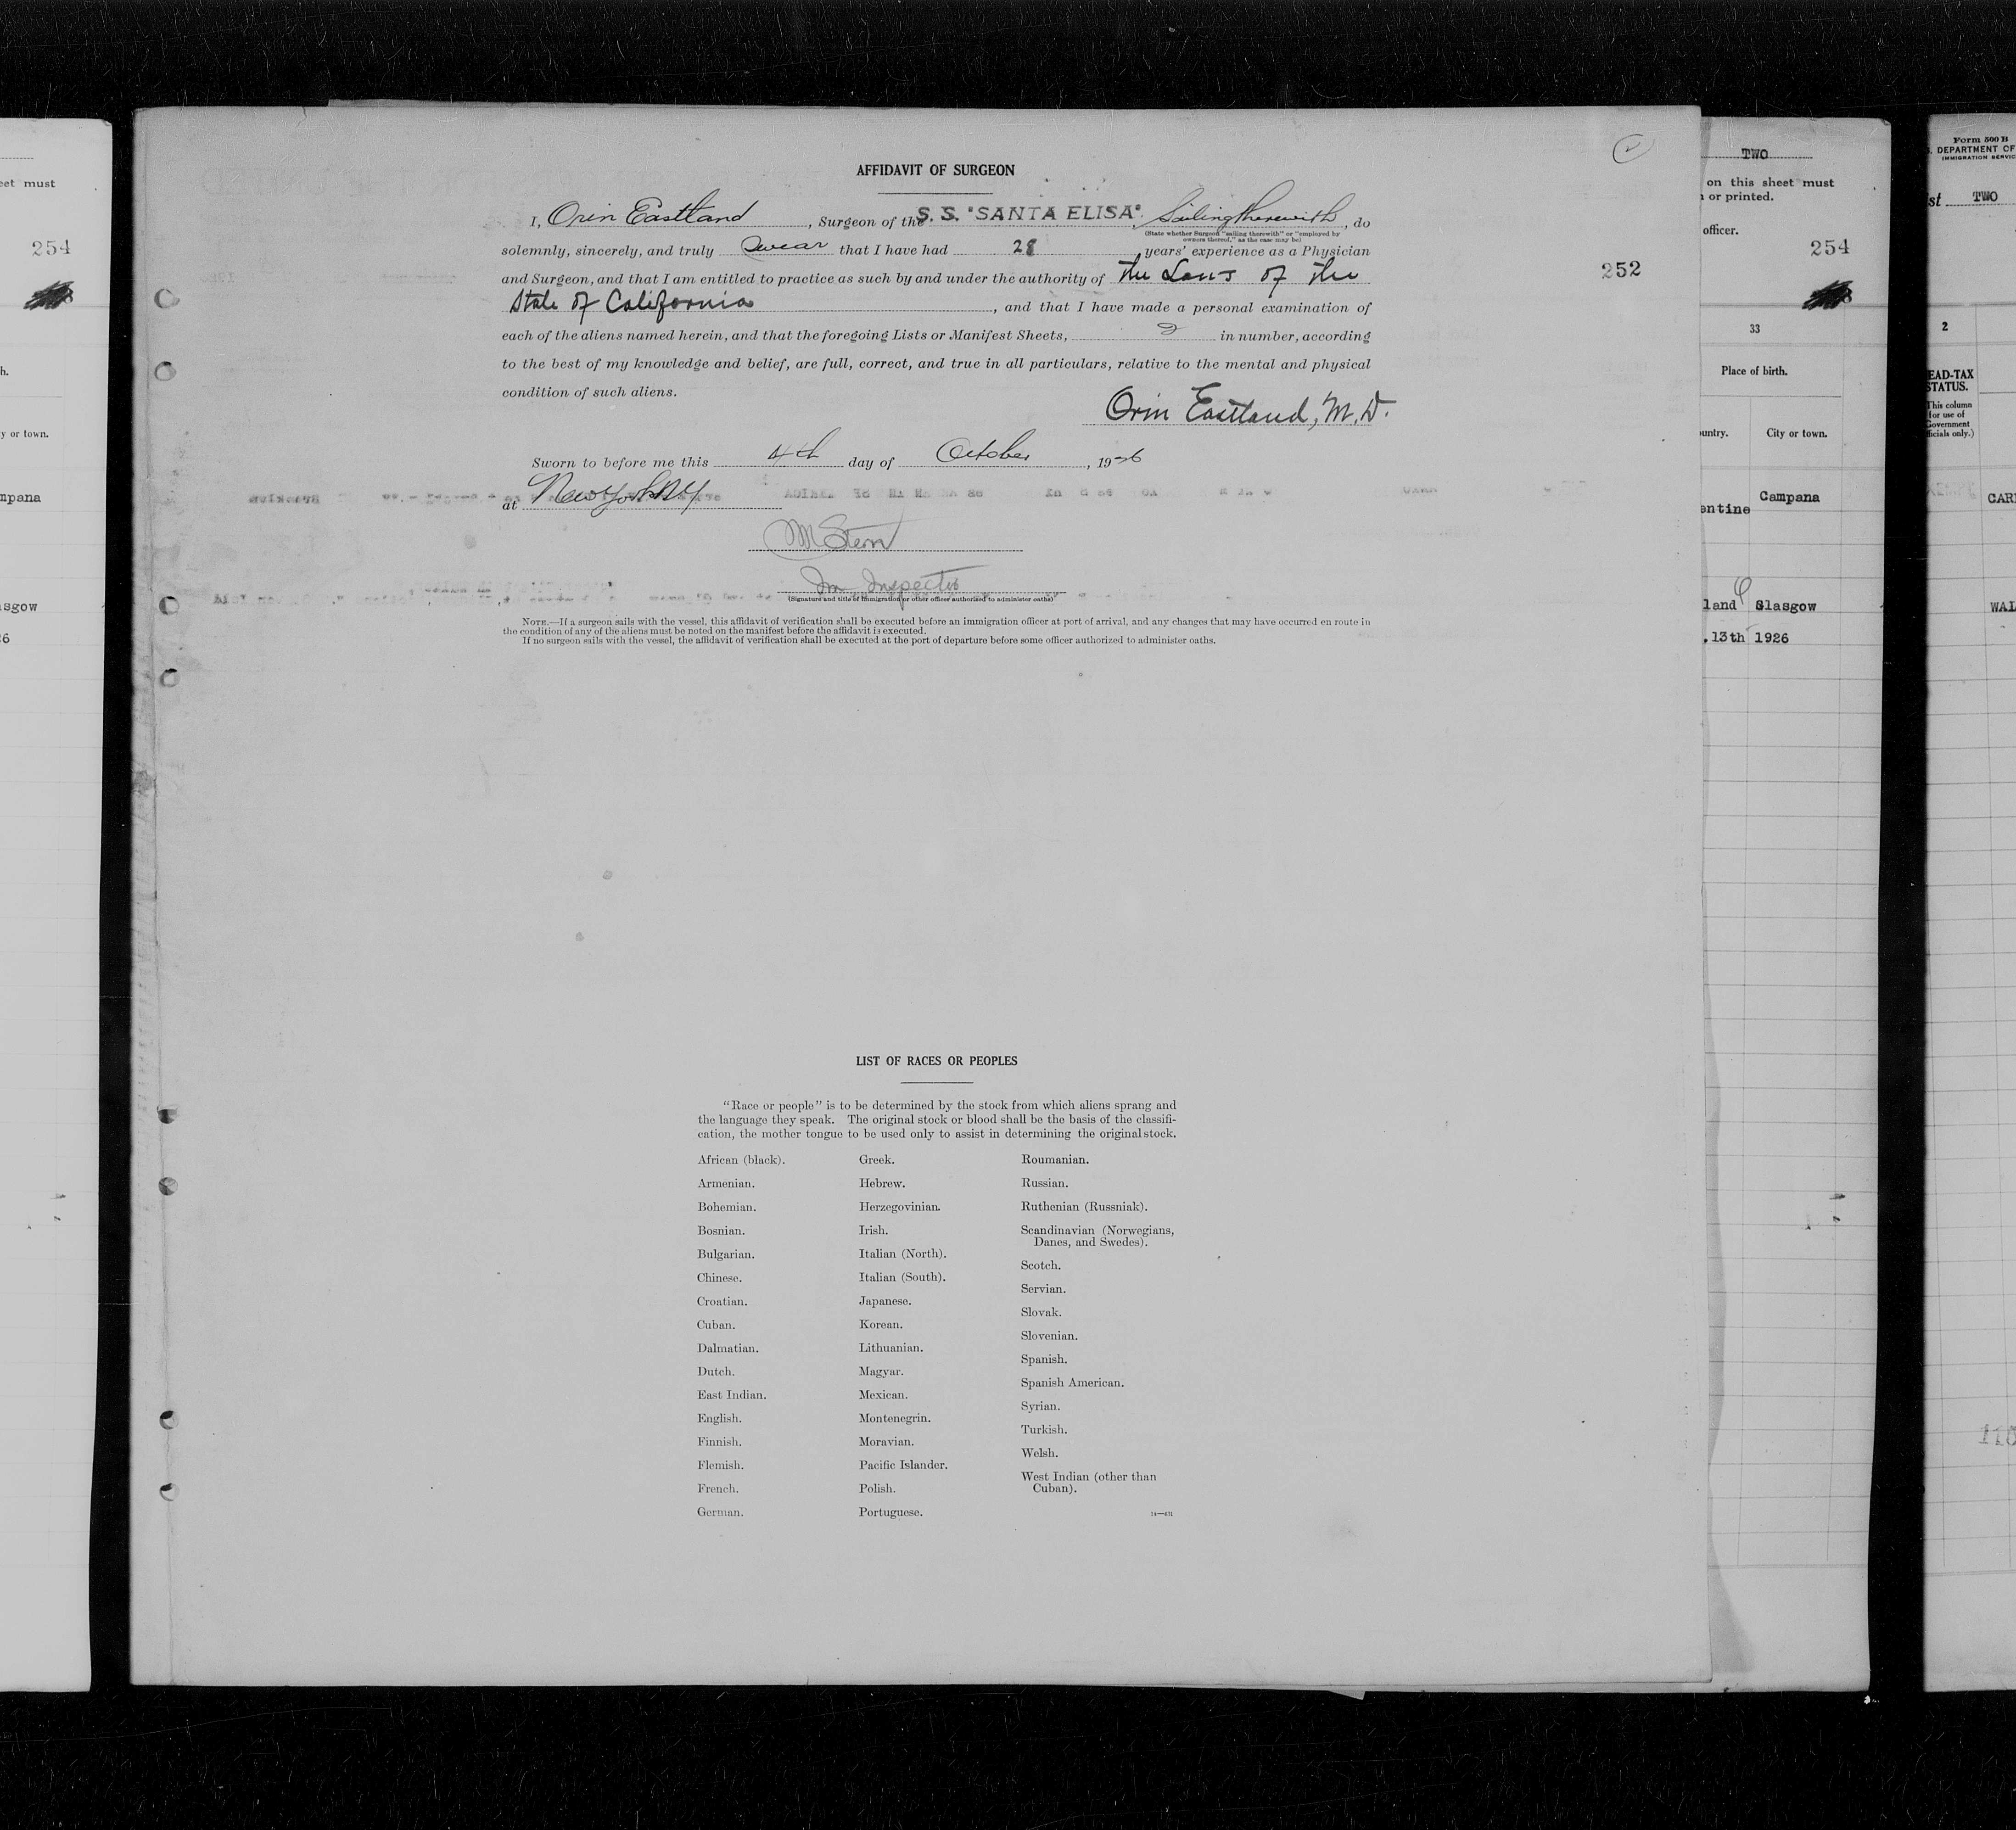 eet must
254
h.
y or town.
mpana
sgow
6
AFFIDAVIT OF SURGEON
I, Orin Eastland, Surgeon of the S. S. "SANTA ELISA", Sailing therewith, do
(State whether Surgeon "sailing therewith" or "employed by
owners thereof," as the case may be)
solemnly, sincerely, and truly swear that I have had 28 years' experience as a Physician
and Surgeon, and that I am entitled to practice as such by and under the authority of the Laws of the
State of California, and that I have made a personal examination of
each of the aliens named herein, and that the foregoing Lists or Manifest Sheets, 2 in number, according
to the best of my knowledge and belief, are full, correct, and true in all particulars, relative to the mental and physical
condition of such aliens.
Orin Eastland, M.D.
Sworn to before me this 4th day of October, 1926
at New York NY
M Stern
Im Inspector
(Signature and title of immigration or other officer authorized to administer oaths)
NOTE.—If a surgeon sails with the vessel, this affidavit of verification shall be executed before an immigration officer at port of arrival, and any changes that may have occurred en route in
the condition of any of the aliens must be noted on the manifest before the affidavit is executed.
If no surgeon sails with the vessel, the affidavit of verification shall be executed at the port of departure before some officer authorized to administer oaths.
252
LIST OF RACES OR PEOPLES
"Race or people" is to be determined by the stock from which aliens sprang and
the language they speak. The original stock or blood shall be the basis of the classifi-
cation, the mother tongue to be used only to assist in determining the original stock.
African (black).
Armenian.
Bohemian.
Bosnian.
Bulgarian.
Chinese.
Croatian.
Cuban.
Dalmatian.
Dutch.
East Indian.
English.
Finnish.
Flemish.
French.
German.
Greek.
Hebrew.
Herzegovinian.
Irish.
Italian (North).
Italian (South).
Japanese.
Korean.
Lithuanian.
Magyar.
Mexican.
Montenegrin.
Moravian.
Pacific Islander.
Polish.
Portuguese.
Roumanian.
Russian.
Ruthenian (Russniak).
Scandinavian (Norwegians,
Danes, and Swedes).
Scotch.
Servian.
Slovak.
Slovenian.
Spanish.
Spanish American.
Syrian.
Turkish.
Welsh.
West Indian (other than
Cuban).
TWO
on this sheet must
or printed.
officer.
254
33
Place of birth.
untry.
City or town.
entine
Campana
land
Glasgow
.13th 1926
Form 500 B
DEPARTMENT OF
IMMIGRATION SERVIC
st TWO
2
EAD-TAX
STATUS.
This column
for use of
Government
ficials only.)
CAR
WAL